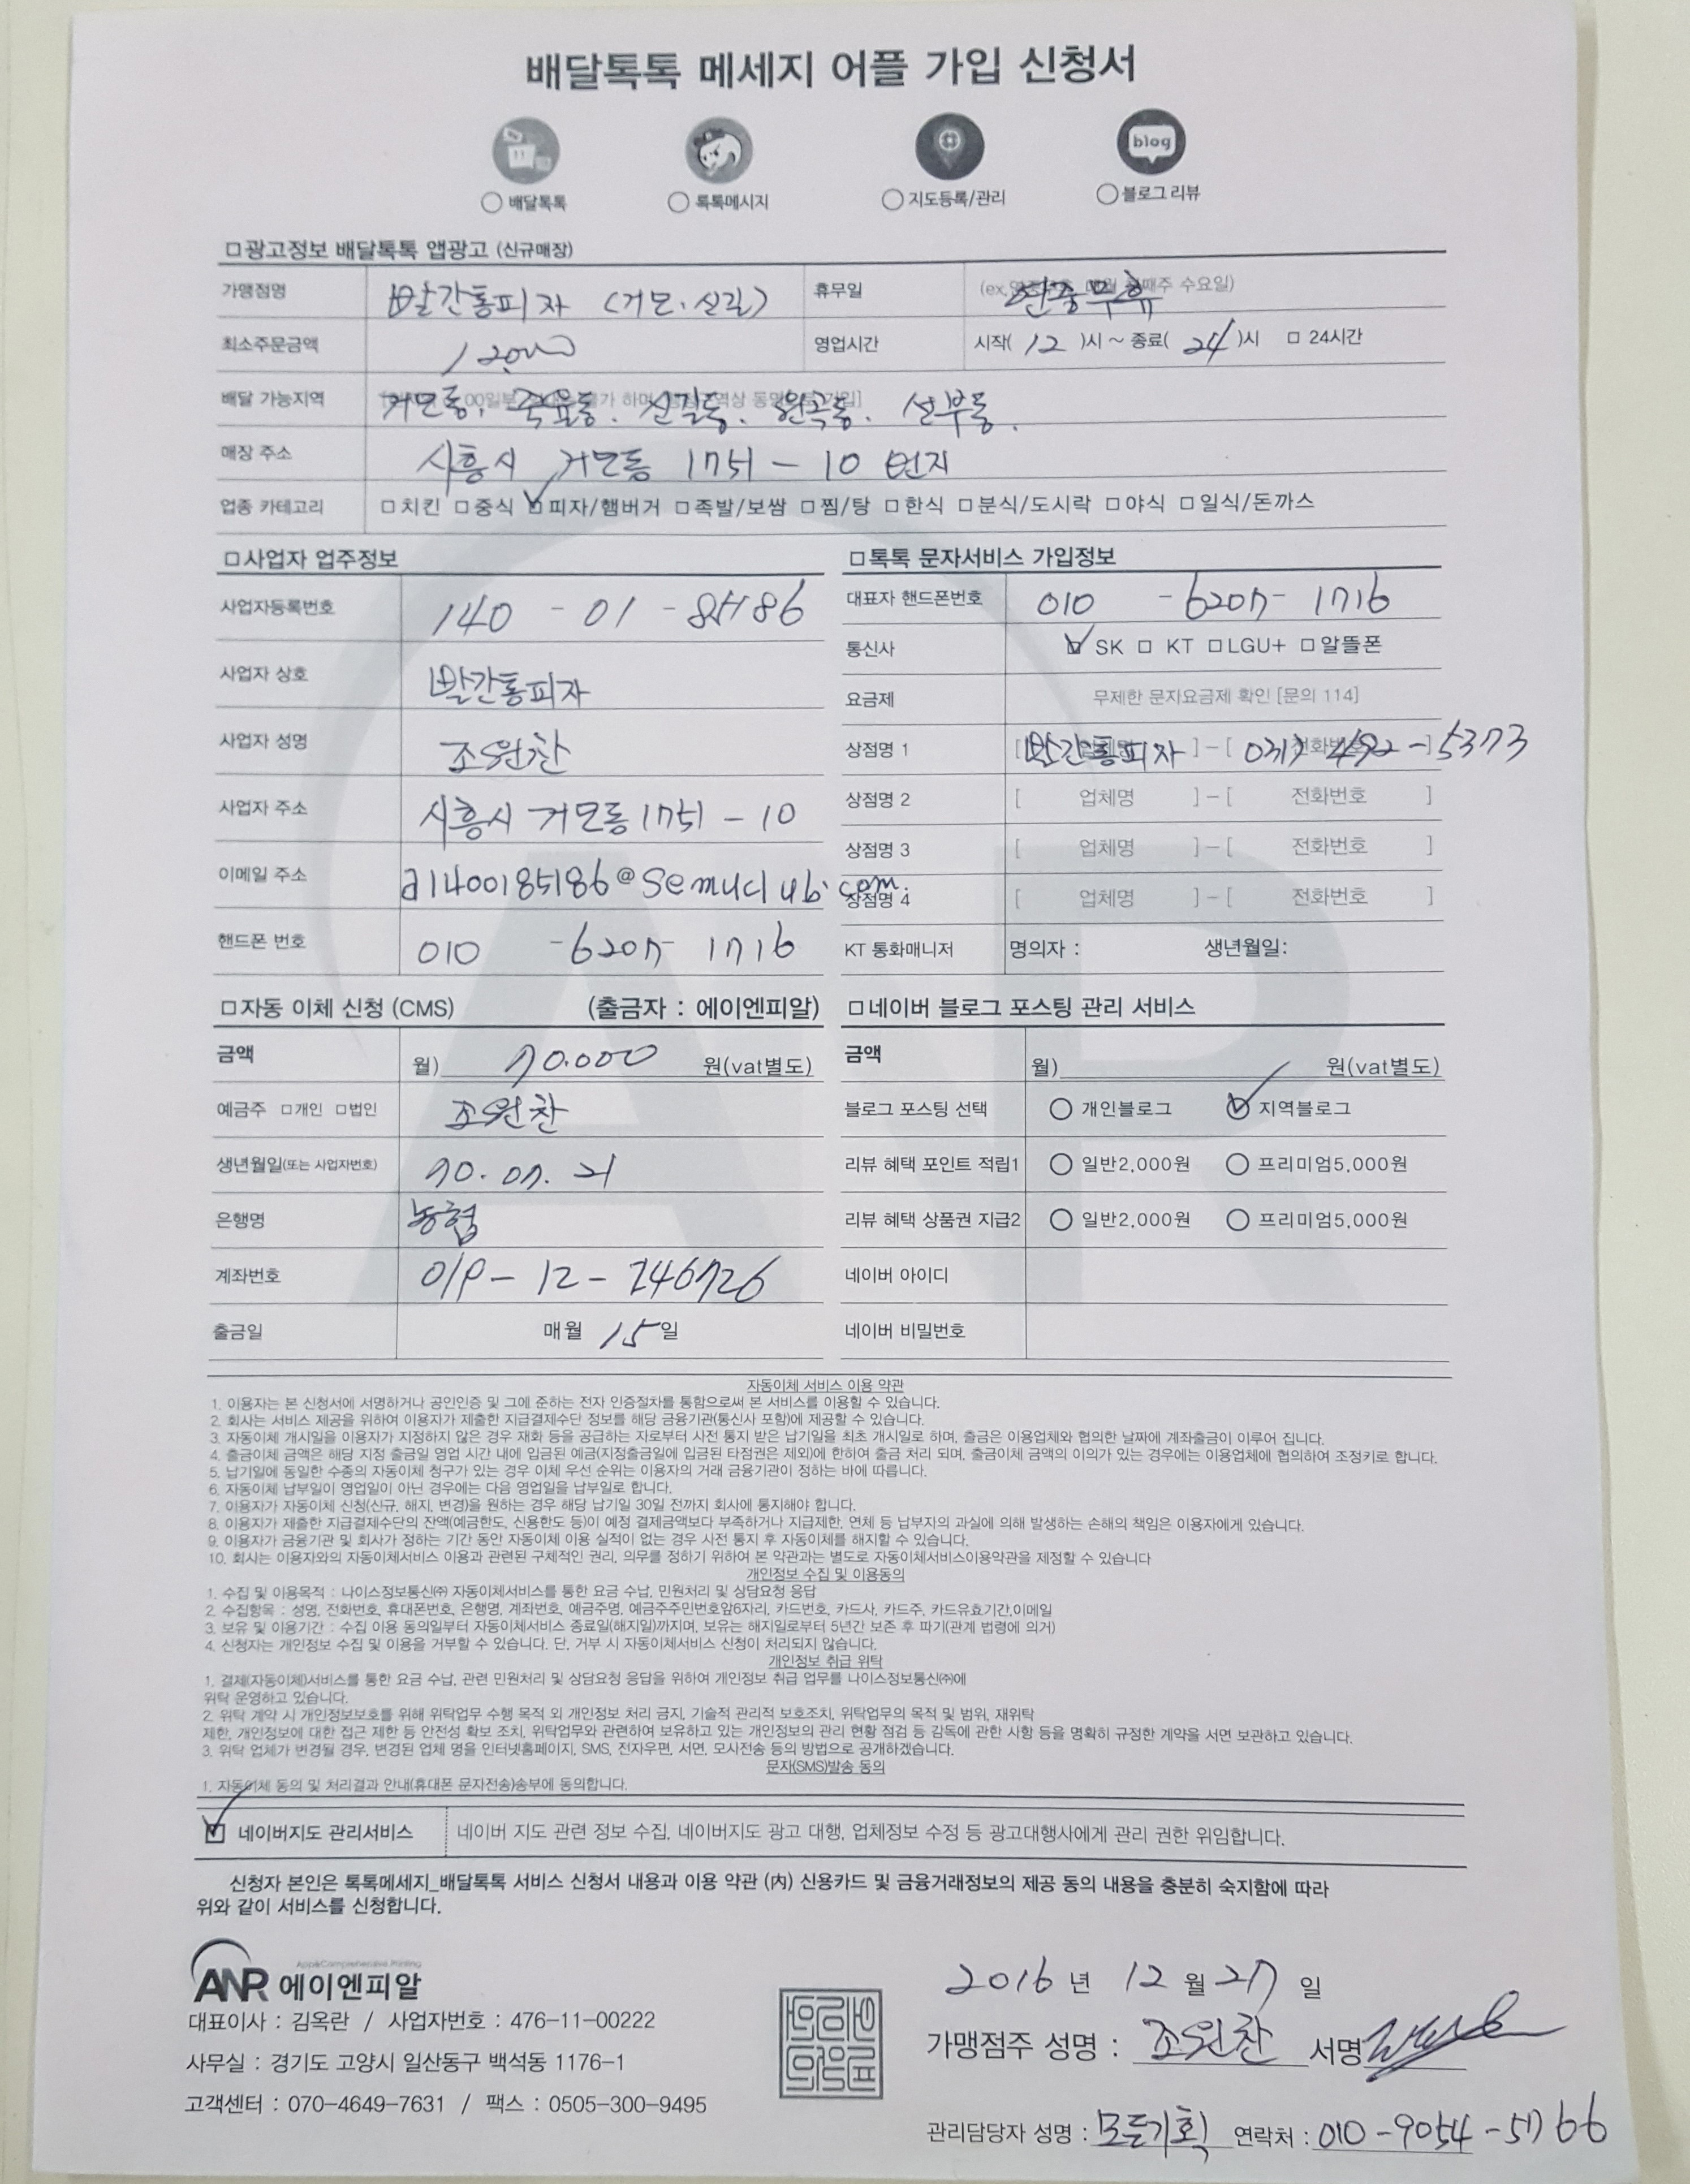 배달톡톡 메세지 어플 가입 신청서
blog
○ 배달톡톡 ○ 톡톡메시지 ○ 지도등록/관리 ○ 블로그 리뷰
□광고정보 배달톡톡 앱광고 (신규매장)
가맹점명 빨간통피자 (거모.신길) 휴무일 연중무휴
최소주문금액 12000 영업시간 시작( 12 )시 ~ 종료( 24 )시 □ 24시간
배달 가능지역 거모동. 죽율동. 신길동. 원곡동. 선부동.
매장 주소 시흥시 거모동 1751 - 10 번지
업종 카테고리 □치킨 □중식 ☑피자/햄버거 □족발/보쌈 □찜/탕 □한식 □분식/도시락 □야식 □일식/돈까스
□사업자 업주정보 □톡톡 문자서비스 가입정보
사업자등록번호 140 - 01 - 85186
대표자 핸드폰번호 010 - 6207 - 1716
통신사 ☑ SK □ KT □LGU+ □알뜰폰
사업자 상호 빨간통피자
요금제 무제한 문자요금제 확인 [문의 114]
사업자 성명 조원찬
상점명 1 [빨간통피자 ] – [ 031) 492 - 5373
사업자 주소 시흥시 거모동 1751 - 10
상점명 2 [ 업체명 ] – [ 전화번호 ]
상점명 3 [ 업체명 ] – [ 전화번호 ]
이메일 주소 a1400185186@semuclub.com.
상점명 4 [ 업체명 ] – [ 전화번호 ]
핸드폰 번호 010 - 6207- 1716
KT 통화매니저 명의자 : 생년월일:
□자동 이체 신청 (CMS) (출금자 : 에이엔피알) □네이버 블로그 포스팅 관리 서비스
금액 월) 70.000 원(vat별도) 금액 월) 원(vat별도)
예금주 □개인 □법인 조원찬 블로그 포스팅 선택 ○ 개인블로그 ☑ 지역블로그
생년월일(또는 사업자번호) 70. 07. 21 리뷰 혜택 포인트 적립1 ○ 일반2,000원 ○ 프리미엄5,000원
은행명 농협 리뷰 혜택 상품권 지급2 ○ 일반2,000원 ○ 프리미엄5,000원
계좌번호 019- 12 - 246726 네이버 아이디
출금일 매월 15 일 네이버 비밀번호
자동이체 서비스 이용 약관
1. 이용자는 본 신청서에 서명하거나 공인인증 및 그에 준하는 전자 인증절차를 통함으로써 본 서비스를 이용할 수 있습니다.
2. 회사는 서비스 제공을 위하여 이용자가 제출한 지급결제수단 정보를 해당 금융기관(통신사 포함)에 제공할 수 있습니다.
3. 자동이체 개시일을 이용자가 지정하지 않은 경우 재화 등을 공급하는 자로부터 사전 통지 받은 납기일을 최초 개시일로 하며, 출금은 이용업체와 협의한 날짜에 계좌출금이 이루어 집니다.
4. 출금이체 금액은 해당 지정 출금일 영업 시간 내에 입금된 예금(지정출금일에 입금된 타점권은 제외)에 한하여 출금 처리 되며, 출금이체 금액의 이의가 있는 경우에는 이용업체에 협의하여 조정키로 합니다.
5. 납기일에 동일한 수종의 자동이체 청구가 있는 경우 이체 우선 순위는 이용자의 거래 금융기관이 정하는 바에 따릅니다.
6. 자동이체 납부일이 영업일이 아닌 경우에는 다음 영업일을 납부일로 합니다.
7. 이용자가 자동이체 신청(신규, 해지, 변경)을 원하는 경우 해당 납기일 30일 전까지 회사에 통지해야 합니다.
8. 이용자가 제출한 지급결제수단의 잔액(예금한도, 신용한도 등)이 예정 결제금액보다 부족하거나 지급제한, 연체 등 납부자의 과실에 의해 발생하는 손해의 책임은 이용자에게 있습니다.
9. 이용자가 금융기관 및 회사가 정하는 기간 동안 자동이체 이용 실적이 없는 경우 사전 통지 후 자동이체를 해지할 수 있습니다.
10. 회사는 이용자와의 자동이체서비스 이용과 관련된 구체적인 권리, 의무를 정하기 위하여 본 약관과는 별도로 자동이체서비스이용약관을 제정할 수 있습니다
개인정보 수집 및 이용동의
1. 수집 및 이용목적 : 나이스정보통신㈜ 자동이체서비스를 통한 요금 수납, 민원처리 및 상담요청 응답
2. 수집항목 : 성명, 전화번호, 휴대폰번호, 은행명, 계좌번호, 예금주명, 예금주주민번호앞6자리, 카드번호, 카드사, 카드주, 카드유효기간,이메일
3. 보유 및 이용기간 : 수집 이용 동의일부터 자동이체서비스 종료일(해지일)까지며, 보유는 해지일로부터 5년간 보존 후 파기(관계 법령에 의거)
4. 신청자는 개인정보 수집 및 이용을 거부할 수 있습니다. 단, 거부 시 자동이체서비스 신청이 처리되지 않습니다.
개인정보 취급 위탁
1. 결제(자동이체)서비스를 통한 요금 수납, 관련 민원처리 및 상담요청 응답을 위하여 개인정보 취급 업무를 나이스정보통신㈜에
위탁 운영하고 있습니다.
2. 위탁 계약 시 개인정보보호를 위해 위탁업무 수행 목적 외 개인정보 처리 금지, 기술적 관리적 보호조치, 위탁업무의 목적 및 범위, 재위탁
제한, 개인정보에 대한 접근 제한 등 안전성 확보 조치, 위탁업무와 관련하여 보유하고 있는 개인정보의 관리 현황 점검 등 감독에 관한 사항 등을 명확히 규정한 계약을 서면 보관하고 있습니다.
3. 위탁 업체가 변경될 경우, 변경된 업체 명을 인터넷홈페이지, SMS, 전자우편, 서면, 모사전송 등의 방법으로 공개하겠습니다.
문자(SMS)발송 동의
1. 자동이체 동의 및 처리결과 안내(휴대폰 문자전송)송부에 동의합니다.
☑ 네이버지도 관리서비스 네이버 지도 관련 정보 수집, 네이버지도 광고 대행, 업체정보 수정 등 광고대행사에게 관리 권한 위임합니다.
신청자 본인은 톡톡메세지_배달톡톡 서비스 신청서 내용과 이용 약관 (內) 신용카드 및 금융거래정보의 제공 동의 내용을 충분히 숙지함에 따라
위와 같이 서비스를 신청합니다.
App&Comprehensive Printing
ANR 에이엔피알
2016 년 12 월 27 일
대표이사 : 김옥란 / 사업자번호 : 476-11-00222
가맹점주 성명 : 조원찬 서명
사무실 : 경기도 고양시 일산동구 백석동 1176-1
고객센터 : 070-4649-7631 / 팩스 : 0505-300-9495
관리담당자 성명 : 모든기획 연락처 : 010 - 9054 - 5766